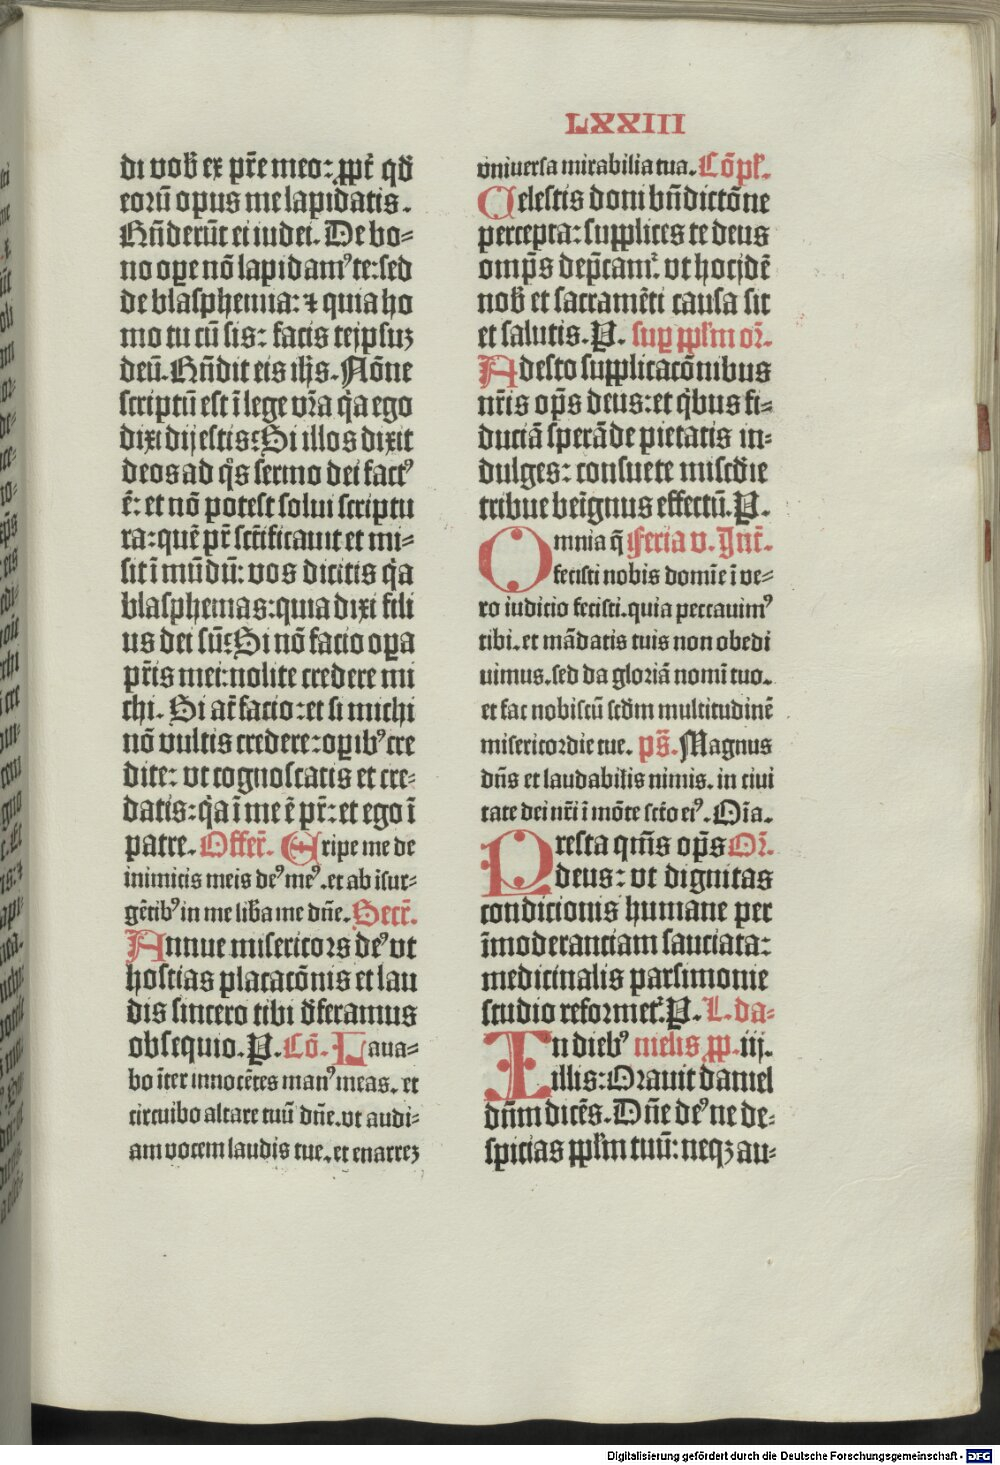 LXXIII
di vob̃ ex pr̃e meo: ꝓpt̃ qđ
eorũ opus me lapidatis.
Rñderũt ei iudei. De bo⸗
no oꝑe nõ lapidamꝰ te: sed
de blasphemia: ⁊ quia ho
mo tu cũ sis: facis teipsuꝫ
deũ. Rñdit eis ihs̃. Nõne
scriptũ est ĩ lege vr̃a qͣa ego
dixi dij estis: Si illos dixit
deos ad qͦs sermo dei factꝰ
ẽ: et nõ potest solui scriptu
ra: quẽ pr̃ sct̃ificauit et mi⸗
sit ĩ mũdũ: vos dicitis qͣa
blasphemas: quia dixi fili
us dei sũ: Si nõ facio oꝑa
pr̃is mei: nolite credere mi
chi. Si at̃ facio: et si michi
nõ vultis credere: oꝑibꝰ cre
dite: vt cognoscatis et cre⸗
datis: qͣa ĩ me ẽ pr̃: et ego ĩ
patre. Offer̃. Eripe me de
inimicis meis deꝰ meꝰ. et ab ĩsur⸗
gẽtibꝰ in me lib̃a me dñe. Secr̃.
Annue misericors deꝰ vt
hostias placatõnis et lau
dis sincero tibi đferamus
obsequio. P. Cõ. Laua⸗
bo ĩter innocẽtes manꝰ meas. et
circuibo altare tuũ dñe. vt audi⸗
am vocem laudis tue. et enarreꝫ
vniuersa mirabilia tua. Cõpl̃.
Celestis doni bñdictõne
percepta: supplices te deus
omps̃ dep̃camᷣ. vt hoc idẽ
nob̃ et sacramẽti causa sit
et salutis. P. suꝑ ppl̃m or̃.
Adesto supplicacõnibus
nr̃is op̃s deus: et qͥbus fi⸗
duciã sperãde pietatis in⸗
dulges: consuete mis̃cđie
tribue beĩgnus effectũ. P.
Omnia q̃ Feria v. Int̃.
fecisti nobis domĩe ĩ ve⸗
ro iudicio fecisti. quia peccauimꝰ
tibi. et mãdatis tuis non obedi
uimus. sed da gloriã nomĩ tuo.
et fac nobiscũ scđm multitudinẽ
misericordie tue. ps̃. Magnus
dñs et laudabilis nimis. in ciui
tate dei nr̃i ĩ mõte sct̃o eiꝰ. Gl̃ia.
Presta qm̃s op̃s Or̃.
deus: vt dignitas
condicionis humane per
ĩmoderanciam sauciata:
medicinalis parsimonie
studio reformetᷣ. P. L. da⸗
In diebꝰ nielis ꝓp. iij.
illis: Orauit daniel
dñm dicẽs. Dñe deꝰ ne de⸗
spicias ppl̃m tuũ: neqꝫ au⸗
Digitalisierung gefördert durch die Deutsche Forschungsgemeinschaft - DFG